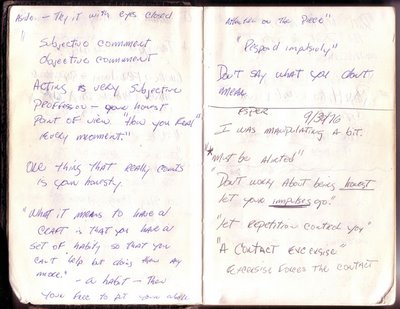 Aside. - Try it with eyes closed
Subjective comment
Objective comment
Acting is very subjective
Profession - your honest
Point of view "How you Feel
every moment."
One thing that really counts
is your honesty
"What it means to have a
CRAFT is that you have a
set of habits so that you
can't help but doing them any
more." - a habit - then
your free to put your
Attached on the Piece"
"Respond impulsively"
Don't say what you don't
mean.
9/30/76
I was manipulating a bit.
"*Must be Alerted"
"Don't worry About being honest
let your impulses go."
"let repetition control you"
"A Contact exercise"
exercise forces the contact